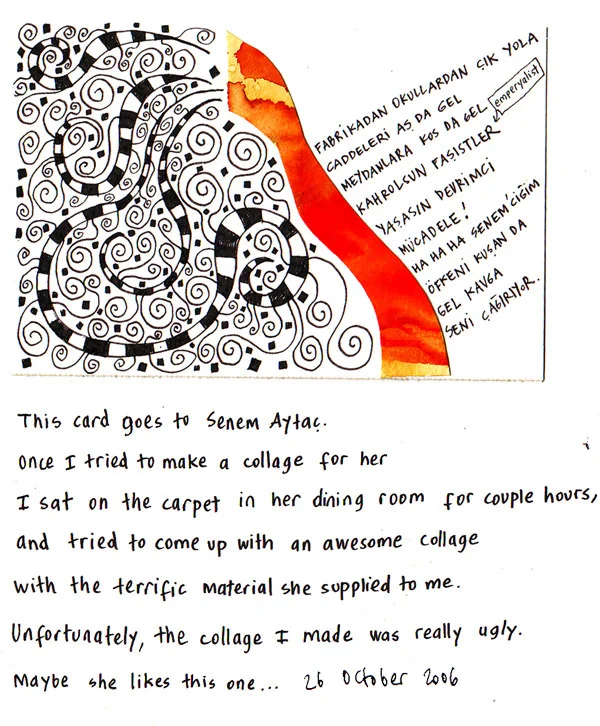 FABRİKADAN OKULLARDAN ÇIK YOLA
CADDELERİ AŞ DA GEL
MEYDANLARA KOŞ DA GEL
emperyalist
KAHROLSUN FAŞİSTLER
YAŞASIN DEVRİMCİ
MÜCADELE!
HA HA HA SENEM'CİĞİM
ÖFKENİ KUŞAN DA
GEL KAVGA
SENİ ÇAĞIRIYOR.
This card goes to Senem Aytaç.
Once I tried to make a collage for her
I sat on the carpet in her dining room for couple hours,
and tried to come up with an awesome collage
with the terrific material she supplied to me.
Unfortunately, the collage I made was really ugly.
Maybe she likes this one... 26 October 2006